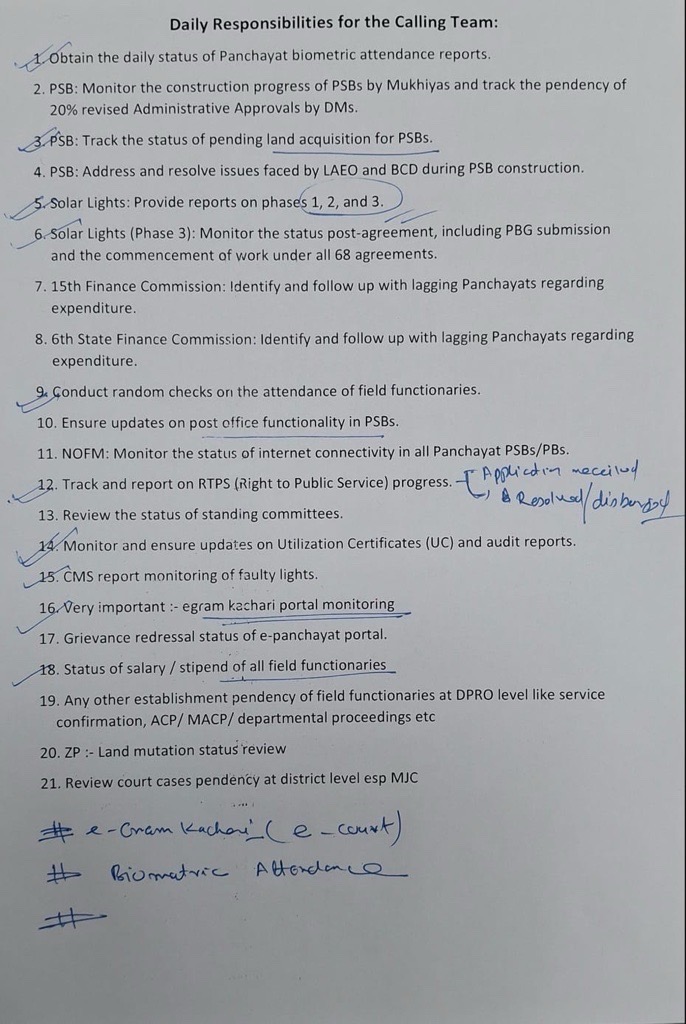 Daily Responsibilities for the Calling Team:
1. Obtain the daily status of Panchayat biometric attendance reports.
2. PSB: Monitor the construction progress of PSBs by Mukhiyas and track the pendency of
20% revised Administrative Approvals by DMs.
3. PSB: Track the status of pending land acquisition for PSBs.
4. PSB: Address and resolve issues faced by LAEO and BCD during PSB construction.
5. Solar Lights: Provide reports on phases 1, 2, and 3.
6. Solar Lights (Phase 3): Monitor the status post-agreement, including PBG submission
and the commencement of work under all 68 agreements.
7. 15th Finance Commission: Identify and follow up with lagging Panchayats regarding
expenditure.
8. 6th State Finance Commission: Identify and follow up with lagging Panchayats regarding
expenditure.
9. Conduct random checks on the attendance of field functionaries.
10. Ensure updates on post office functionality in PSBs.
11. NOFM: Monitor the status of internet connectivity in all Panchayat PSBs/PBs.
12. Track and report on RTPS (Right to Public Service) progress. Application received
Resolved/disbursed
13. Review the status of standing committees.
14. Monitor and ensure updates on Utilization Certificates (UC) and audit reports.
15. CMS report monitoring of faulty lights.
16. Very important :- egram kachari portal monitoring
17. Grievance redressal status of e-panchayat portal.
18. Status of salary / stipend of all field functionaries
19. Any other establishment pendency of field functionaries at DPRO level like service
confirmation, ACP/ MACP/ departmental proceedings etc
20. ZP :- Land mutation status review
21. Review court cases pendency at district level esp MJC
# e-Gram Kachari (e-court)
# Biomatric Attendance
#